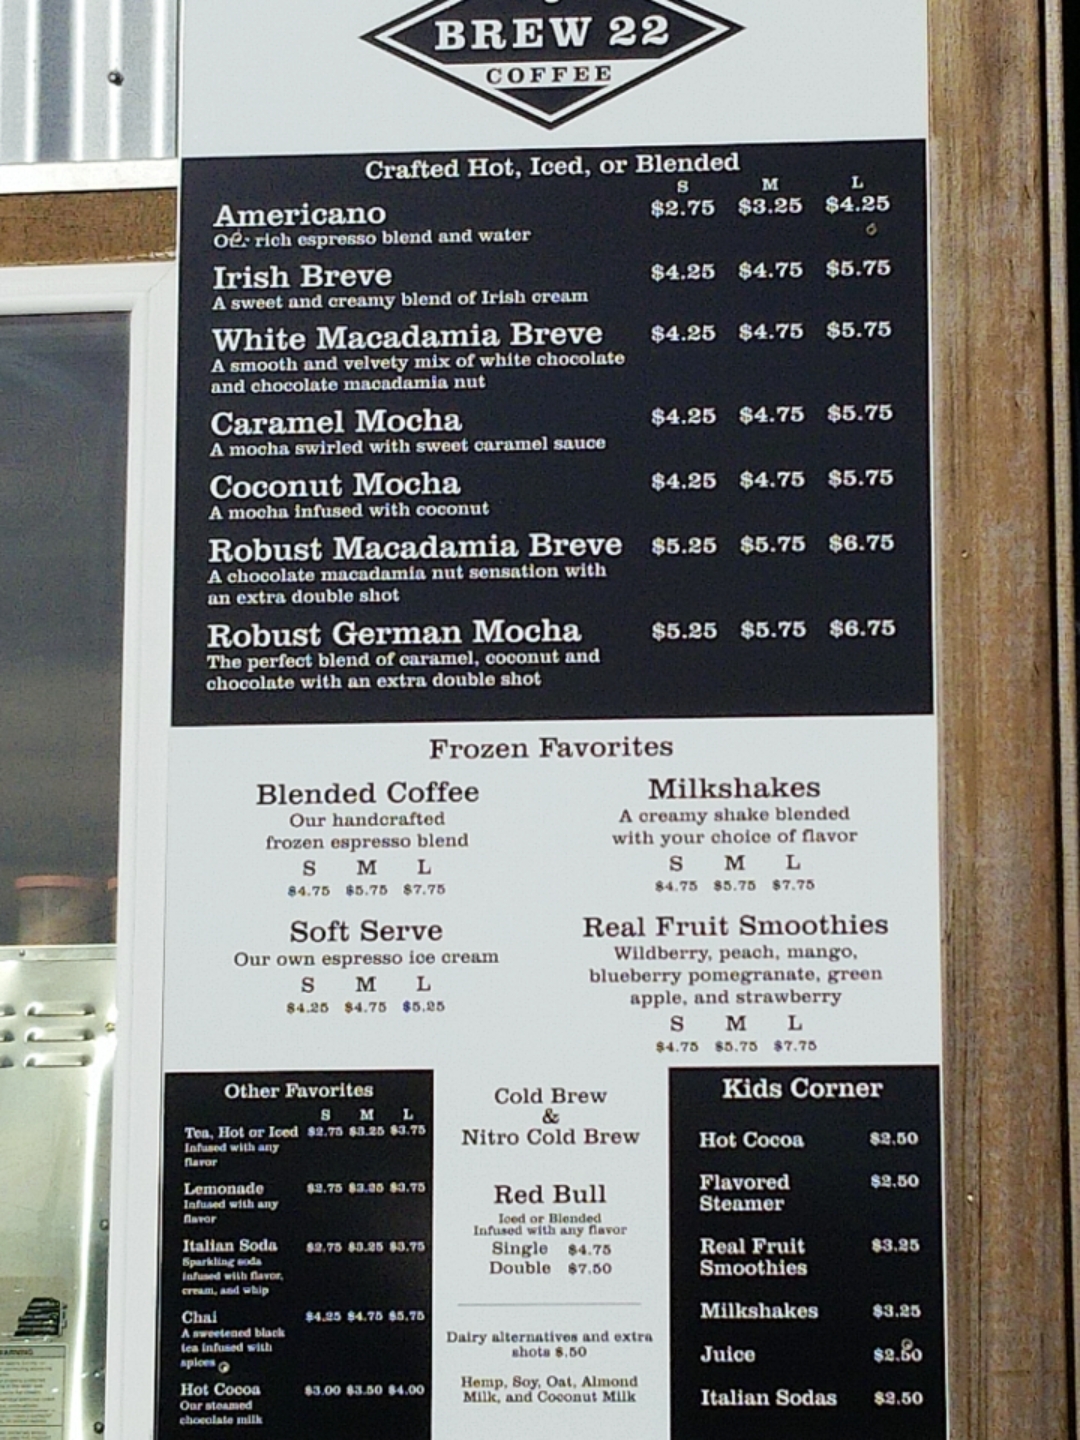 BREW 22
COFFEE
Crafted Hot, Iced, or Blended
S M L
Americano $2.75 $3.25 $4.25
Our rich espresso blend and water
Irish Breve $4.25 $4.75 $5.75
A sweet and creamy blend of Irish cream
White Macadamia Breve $4.25 $4.75 $5.75
A smooth and velvety mix of white chocolate
and chocolate macadamia nut
Caramel Mocha $4.25 $4.75 $5.75
A mocha swirled with sweet caramel sauce
Coconut Mocha $4.25 $4.75 $5.75
A mocha infused with coconut
Robust Macadamia Breve $5.25 $5.75 $6.75
A chocolate macadamia nut sensation with
an extra double shot
Robust German Mocha $5.25 $5.75 $6.75
The perfect blend of caramel, coconut and
chocolate with an extra double shot
Frozen Favorites
Blended Coffee
Our handcrafted
frozen espresso blend
S M L
$4.75 $5.75 $7.75
Soft Serve
Our own espresso ice cream
S M L
$4.25 $4.75 $5.25
Milkshakes
A creamy shake blended
with your choice of flavor
S M L
$4.75 $5.75 $7.75
Real Fruit Smoothies
Wildberry, peach, mango,
blueberry pomegranate, green
apple, and strawberry
S M L
$4.75 $5.75 $7.75
Other Favorites
S M L
Tea, Hot or Iced $2.75 $3.25 $3.75
Infused with any
flavor
Lemonade $2.75 $3.25 $3.75
Infused with any
flavor
Italian Soda $2.75 $3.25 $3.75
Sparkling soda
infused with flavor,
cream, and whip
Chai $4.25 $4.75 $5.75
A sweetened black
tea infused with
spices
Hot Cocoa $3.00 $3.50 $4.00
Our steamed
chocolate milk
Cold Brew
&
Nitro Cold Brew
Red Bull
Iced or Blended
Infused with any flavor
Single $4.75
Double $7.50
Dairy alternatives and extra
shots $.50
Hemp, Soy, Oat, Almond
Milk, and Coconut Milk
Kids Corner
Hot Cocoa $2.50
Flavored $2.50
Steamer
Real Fruit $3.25
Smoothies
Milkshakes $3.25
Juice $2.50
Italian Sodas $2.50
WARNING